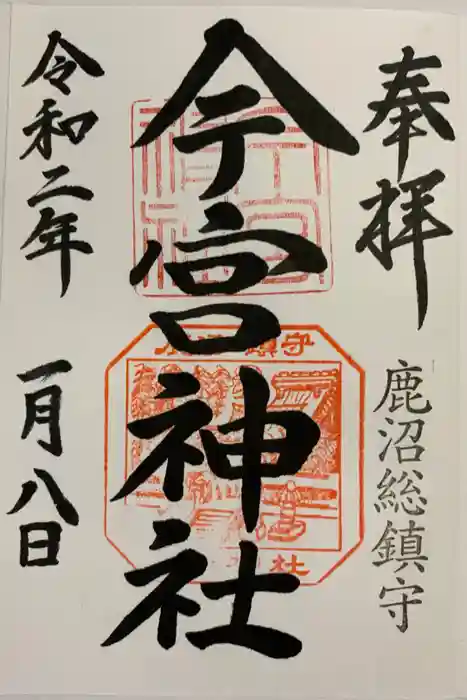 奉拝
鹿沼総鎮守
今宮神社
令和二年
一月八日